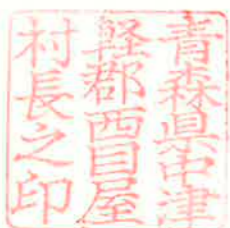 青森県中津
軽郡西目屋
村長之印